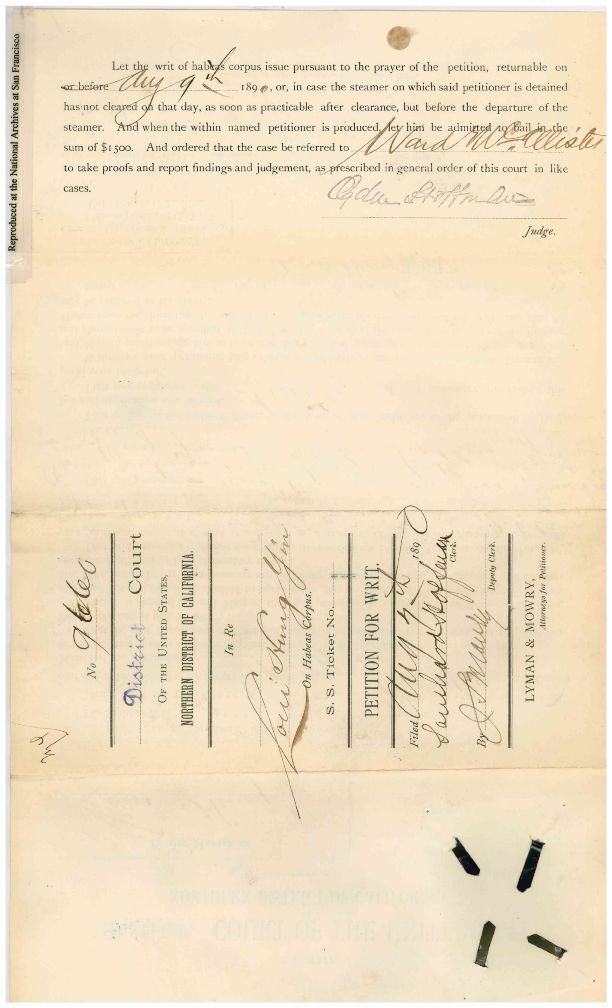 Reproduced at the National Archives at San Francisco
Let the writ of habeas corpus issue pursuant to the prayer of the petition, returnable on
or before Aug 9th 1890, or, in case the steamer on which said petitioner is detained
has not cleared on that day, as soon as practicable after clearance, but before the departure of the
steamer. And when the within named petitioner is produced, let him be admitted to bail in the
sum of $1500. And ordered that the case be referred to Ward McAllister
to take proofs and report findings and judgement, as prescribed in general order of this court in like
cases.
Ogden Hoffman
Judge.
No
District Court
OF THE UNITED STATES,
NORTHERN DISTRICT OF CALIFORNIA.
In Re
On Habeas Corpus.
S. S. Ticket No.
PETITION FOR WRIT.
Filed Aug 1890
Southard Hoffman
Clerk.
By
Deputy Clerk.
LYMAN & MOWRY,
Attorneys for Petitioner.